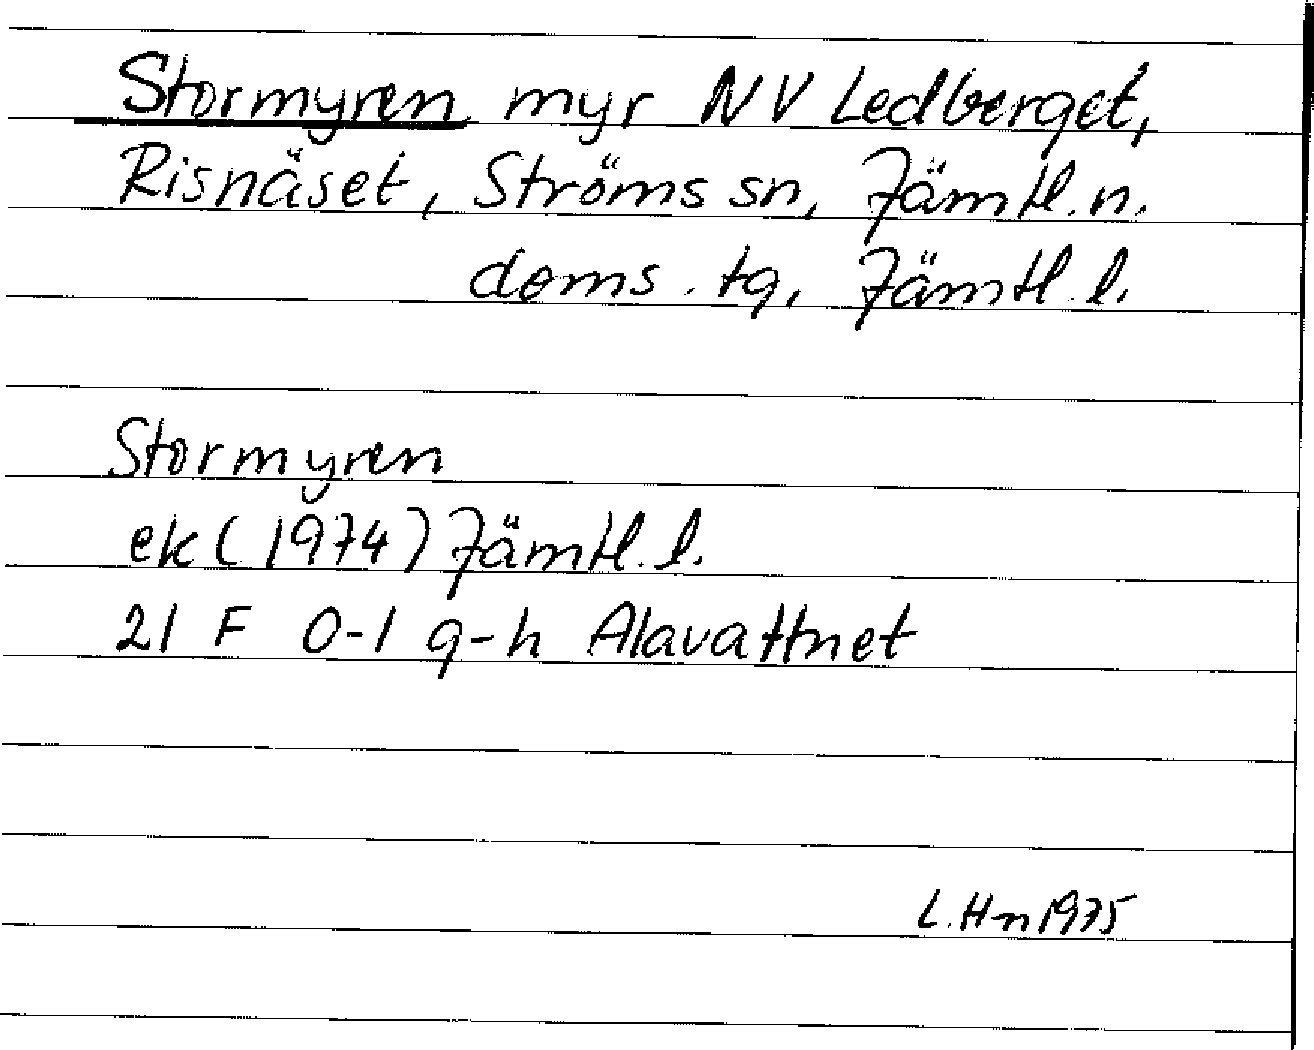 Stormyren myr NV Ledberget,
Risnäset, Ströms sn, Jämtl. n.
doms. tg, Jämtl. l.
Stormyren
ek (1974) Jämtl. l.
21 F 0-1 g-h Alavattnet
L. Hn 1975